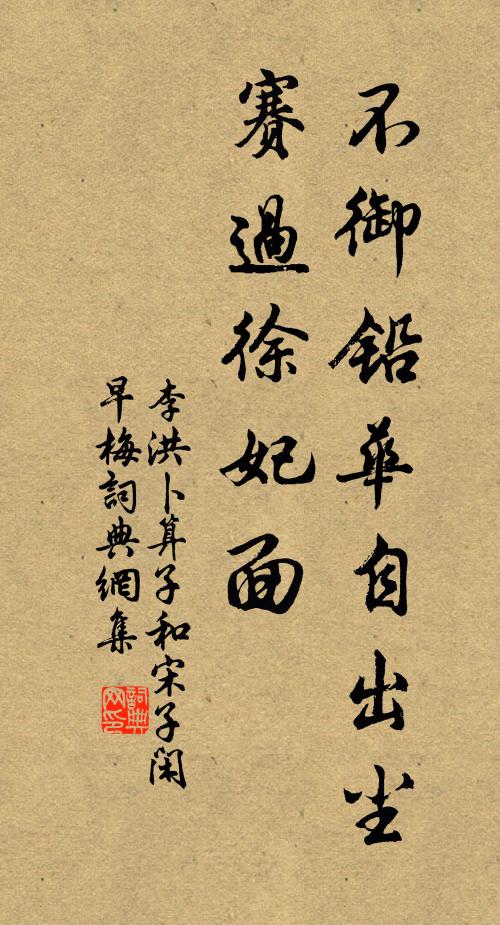 不御鉛華自出尘
賽過徐妃面
李洪卜算子和宋子閑
早梅詞典網集
詞典
网印